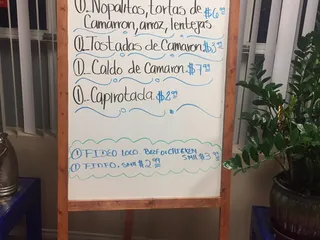 ① Nopalitos, tortas de $6.99
Camarron, arroz, lentejas
① Tostadas de Camaron
① Caldo de Camaron. $7.99
① Capirotada. $2.99
① FIDEO LOCO. BEEF or CHICKEN
SMM. $3.99
① FIDEO. SMM $2.99